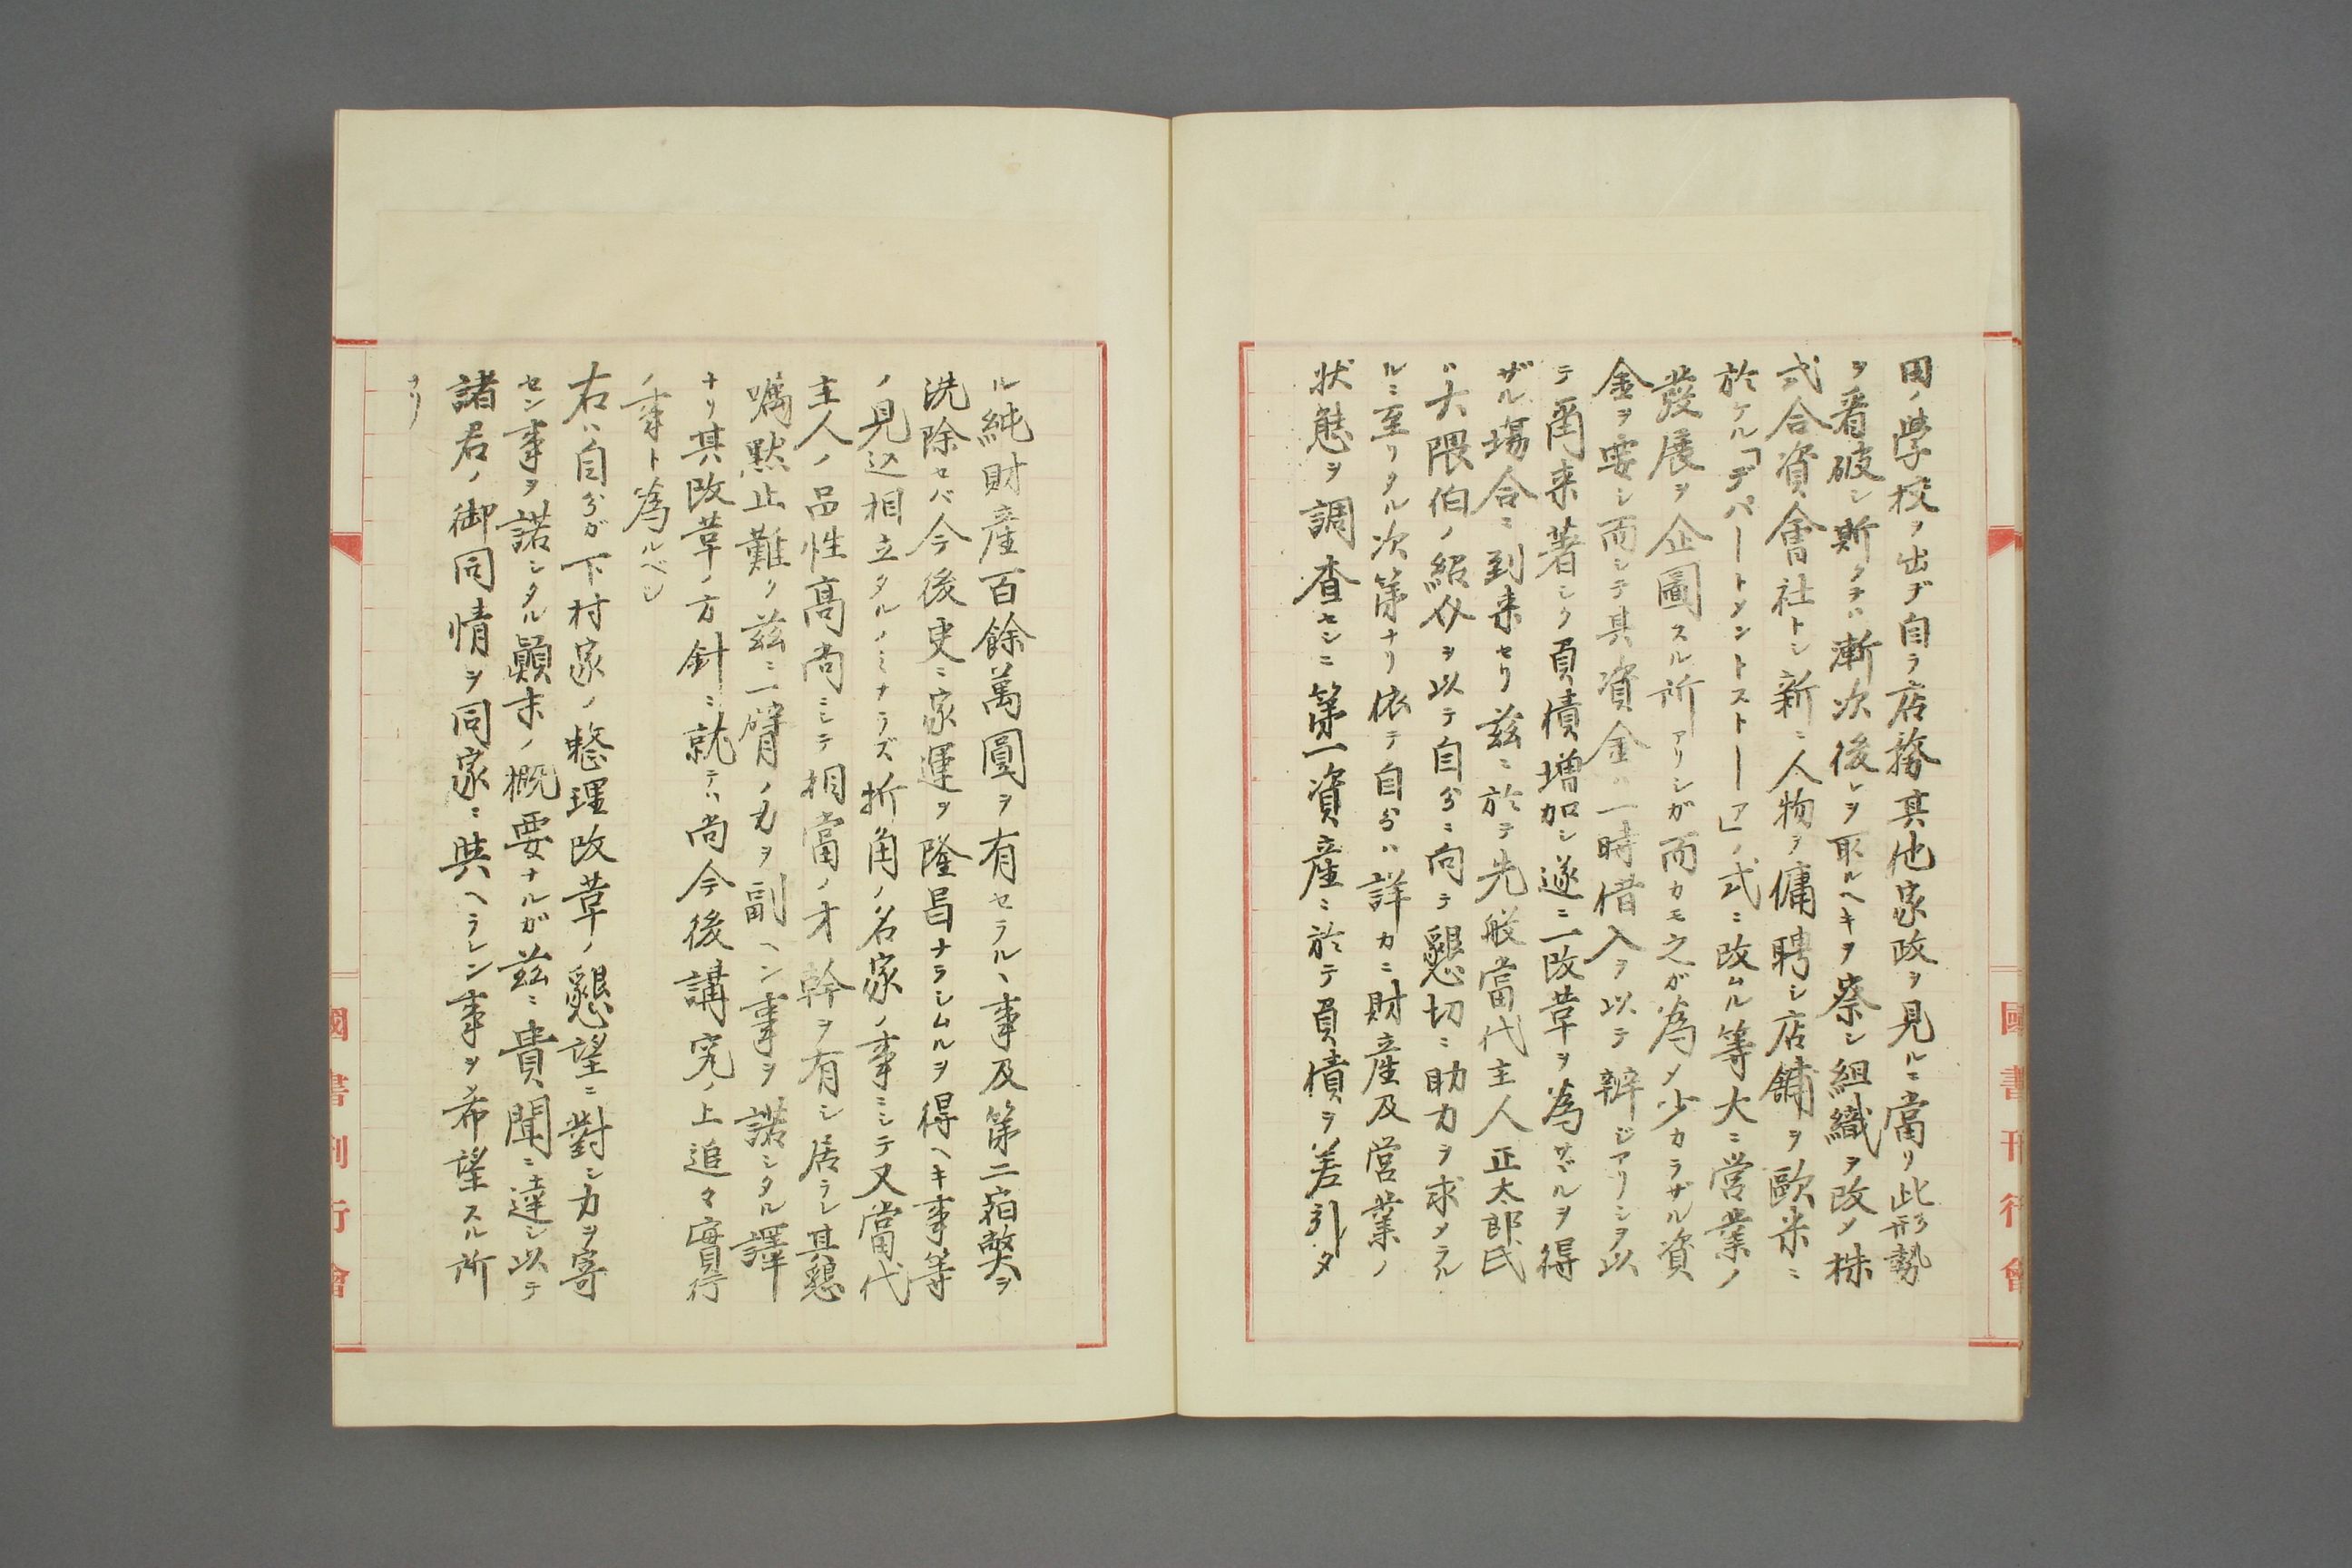 田ノ學校ヲ出デ自ラ店務其他家政ヲ見ルニ當リ此形勢
ヲ看破シ斯クテハ漸次後レヲ取ルヘキヲ察シ組織ヲ改メ株
式合資會社トシ新ニ人物ヲ傭聘シ店舗ヲ歐米ニ
於ケル「デパートメントストーア」ノ式ニ改ムル等大ニ営業ノ
發展ヲ企圖スル所アリシガ而カモ之が為メ少カラザル資
金ヲ要シ而シテ其資金ハ一時借入ヲ以テ辨ジアリシヲ以
テ爾来著シク負債増加シ遂ニ一改革ヲ為サザルヲ得
ザル場合ニ到来セリ茲ニ於テ先般當代主人正太郎氏
ハ大隈伯ノ紹介ヲ以テ自分ニ向テ懇切ニ助力ヲ求メラル
ルニ至リタル次第ナリ依テ自分ハ詳カニ財産及営業ノ
状態ヲ調査セシニ第一資産ニ於テ負債ヲ差引タ
ル純財産百餘萬圓ヲ有セラルヽ事及第二宿弊ヲ
洗除セバ今後更ニ家運ヲ隆昌ナラシムルヲ得ヘキ事等
ノ見込相立タルノミナラズ折角ノ名家ノ事ニシテ又當代
主人ノ品性高尚ニシテ相當ノ才幹ヲ有シ居ラレ其懇
囑黙止難ク茲ニ一臂ノ力ヲ副ヘン事ヲ諾シタル譯
ナリ其改革ノ方針ニ就テハ尚今後講究ノ上追々實行
ノ事ト為ルベシ
右ハ自分ガ下村家ノ整理改革ノ懇望ニ對シ力ヲ寄
セン事ヲ諾シタル顛末ノ概要ナルガ茲ニ貴聞ニ達シ以テ
諸君ノ御同情ヲ同家ニ與ヘラレン事ヲ希望スル所
ナリ
國書刊行會
國書刊行會